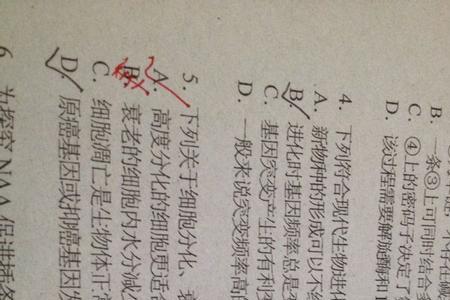 B. 一条③上可同时结合
C. ④上的密码子决定了
D. 该过程需要解旋酶和
4. 下列符合现代生物进化
A. 新物种的形成可以不
B. 进化时基因频率总是
C. 基因突变产生的有利
D. 一般来说突变频率高的
5. 下列关于细胞分化、衰
A. 高度分化的细胞更适合
B. 衰老的细胞内水分减少
C. 细胞凋亡是生物体正常
D. 原癌基因或抑癌基因发
6. 为探究 NAA 促进